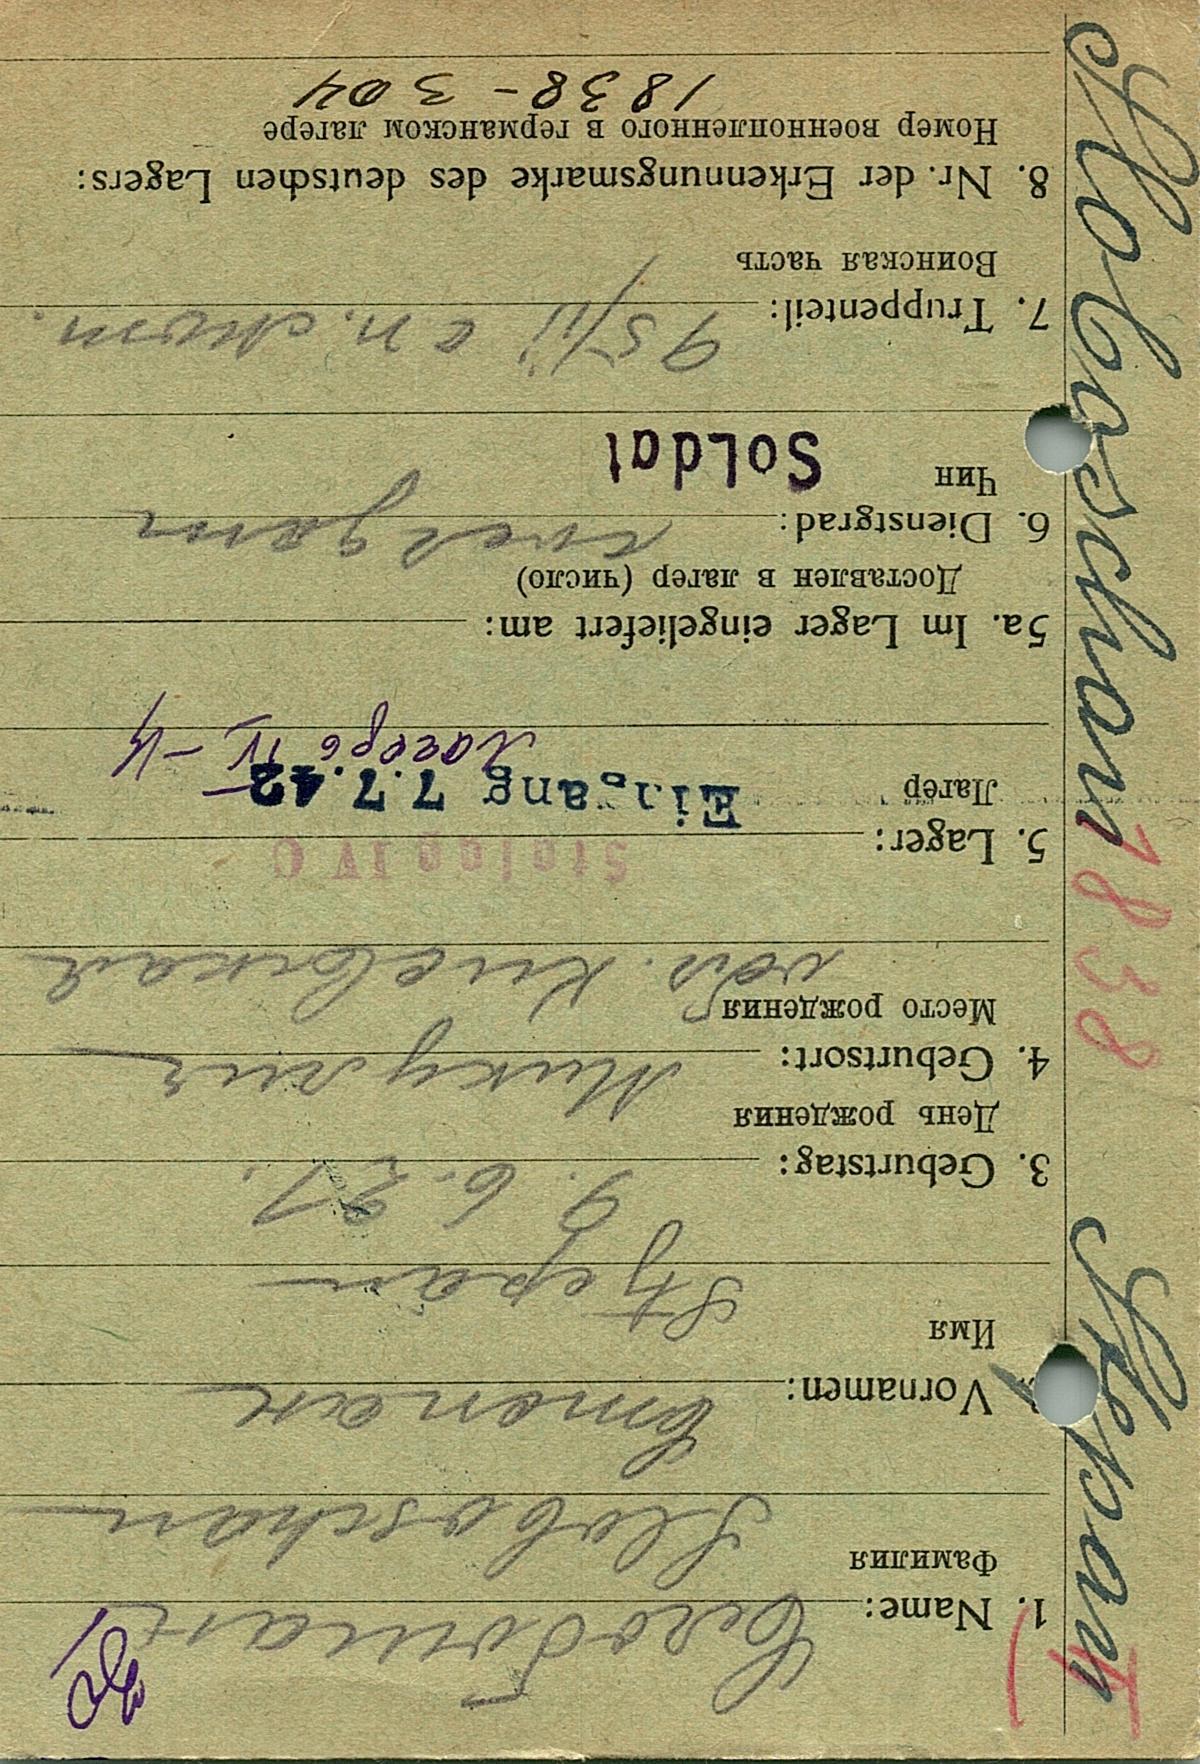 Sloboschan Stepan
1838
1. Name: Слобожан
Фамилия
Sloboschan
Vornamen: Степан
Имя
Stjepan
3. Geburtstag: 9. 6. 21.
День рождения
4. Geburtsort:
Место рождения
обл.
Stalag IV C
5. Lager:
Лагерь
Eingang 7.7.42
Лагерь IV
5a. Im Lager eingeliefert am:
Доставлен в лагер (число)
6. Dienstgrad:
Чин
Soldat
7. Truppenteil: 95/ii
Воинская часть
8. Nr. der Erkennungsmarke des deutschen Lagers:
Номер военнопленного в германском лагере
1838 - 304